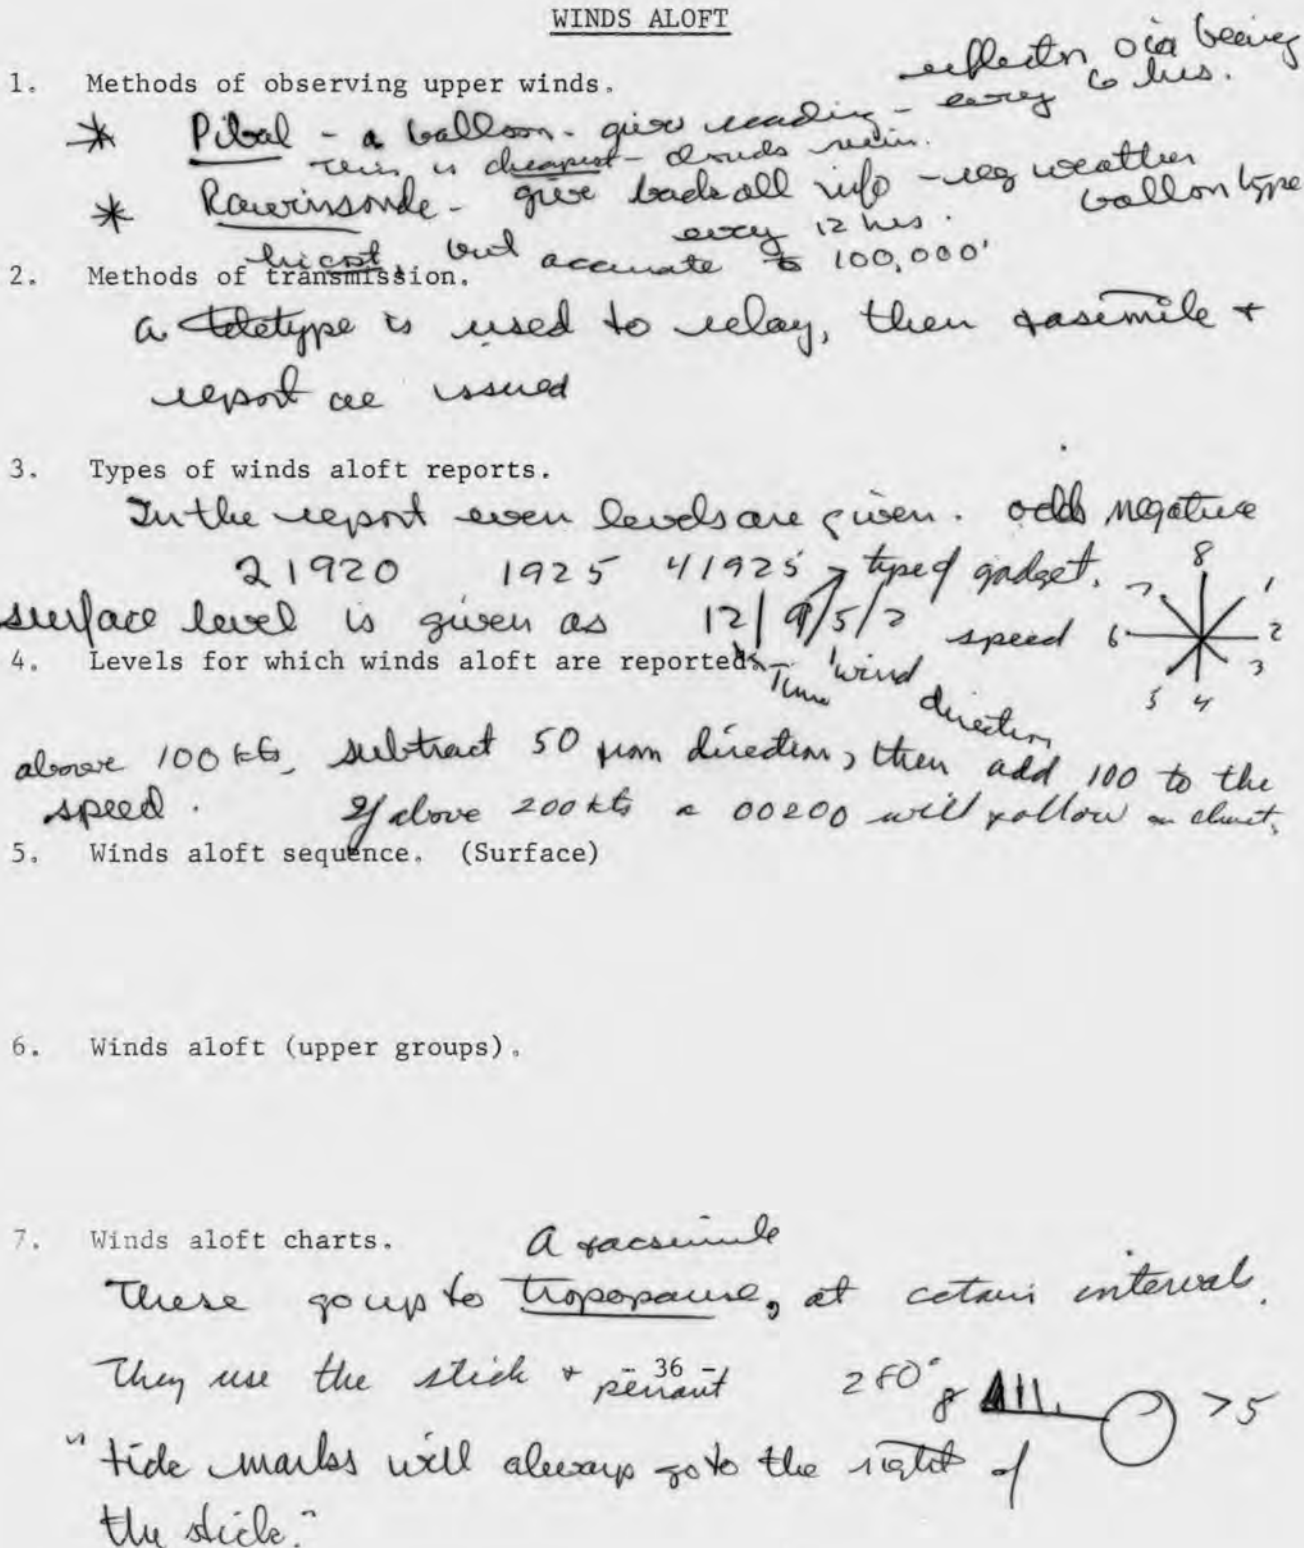 WINDS ALOFT
1. Methods of observing upper winds.
* Pibal - a balloon - give reading - every 6 hrs.
this is cheapest - clouds ruin.
* Rawinsonde - give back all info - reg weather ballon type
every 12 hrs.
hi cost, but accurate to 100,000'
2. Methods of transmission.
a teletype is used to relay, then fasimile +
report are issued
3. Types of winds aloft reports.
In the report even levels are given. odd negative
21920 1925 41925 type of gadget.
surface level is given as 12/9/5/2 speed
8 1 2 3 4 5 6 7
4. Levels for which winds aloft are reported.
Time wind direction
above 100 kts, subtract 50 from direction, then add 100 to the
speed. If above 200 kts a 00200 will follow on chart.
5. Winds aloft sequence. (Surface)
6. Winds aloft (upper groups).
7. Winds aloft charts. A facsimile
These go up to tropopause, at certain interval.
They use the stick + pennant
- 36 -
8 >5
"tide marks will always go to the right of
the stick."